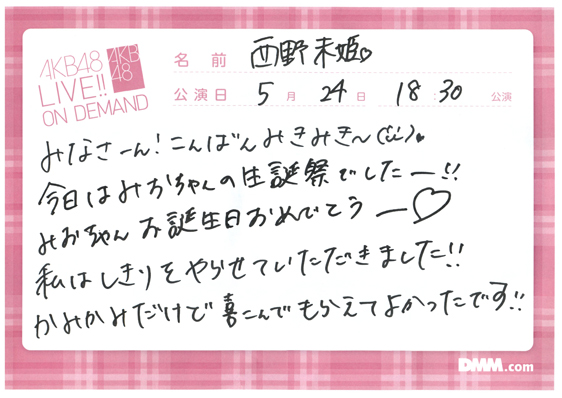 AKB48
LIVE!!
ON DEMAND
AKB
48
名前 西野未姫♡
公演日 5月 24日 18:30 公演
みなさーん!こんばんみきみき〜(ii)♥
今日はみおちゃんの生誕祭でしたー!!
みおちゃんお誕生日おめでとうー♡
私はしきりをやらせていただきました!!
かみかみだけど喜こんでもらえてよかったです!!
DMM.com